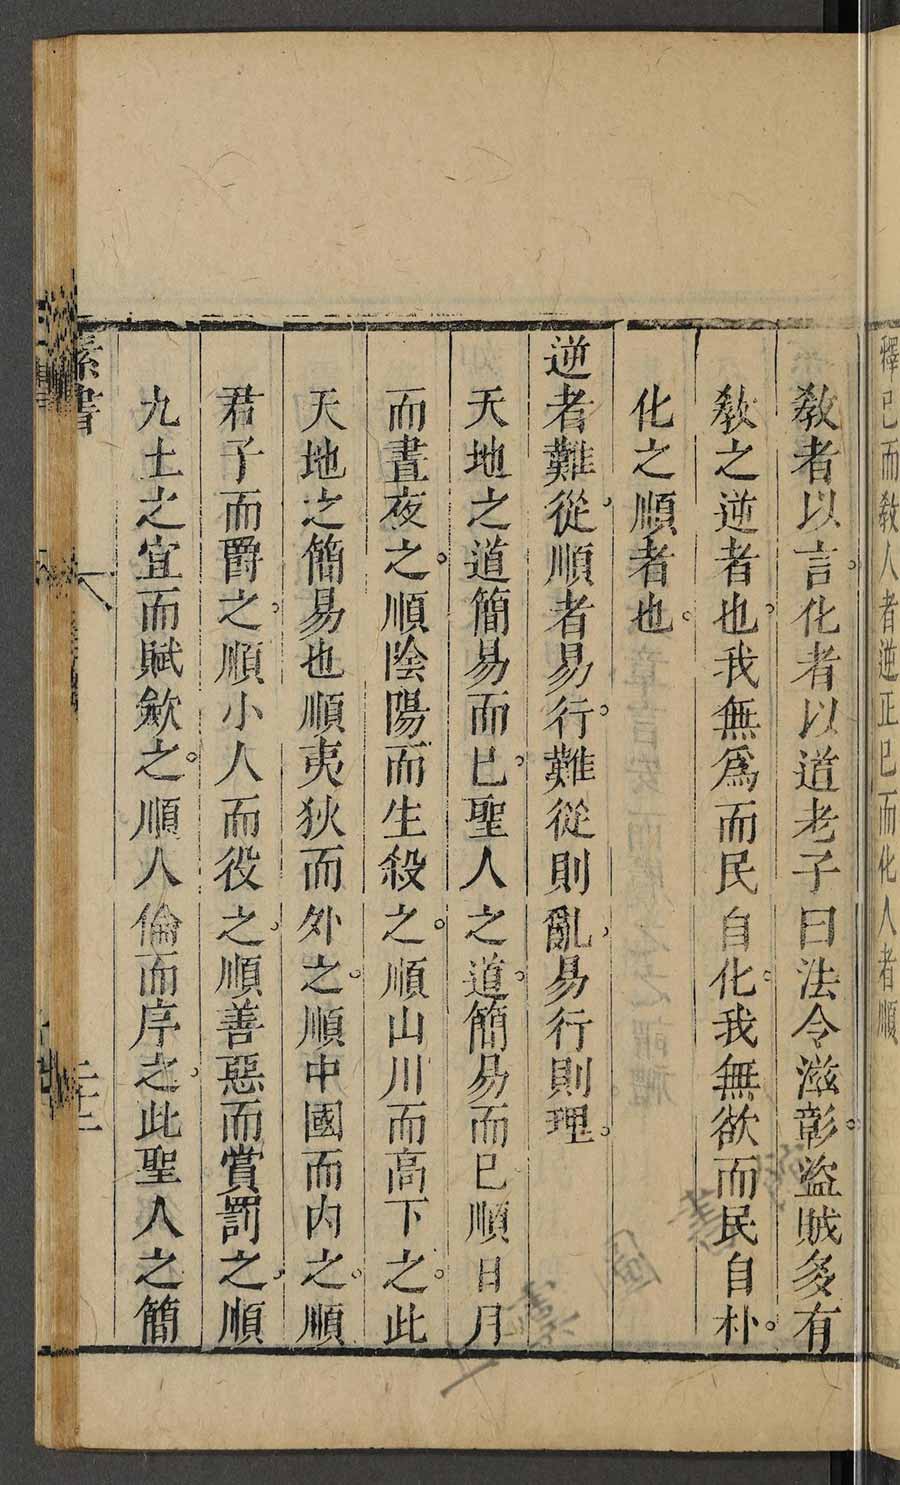 釋己而敎人者逆正己而化人者順
敎者以言。化者以道老子曰法令滋彰。盜賊多有
敎之逆者也。我無爲而民自化。我無欲而民自朴。
化之順者也。
逆者難從。順者易行。難從則亂。易行則理。
天地之道簡易而已。聖人之道。簡易而已順日月
而晝夜之。順陰陽而生殺之。順山川而高下之。此
天地之簡易也順夷狄而外之。順中國而內之。順
君子而爵之。順小人而役之。順善惡而賞罰之。順
九土之宜而賦斂之。順人倫而序之。此聖人之簡
素書